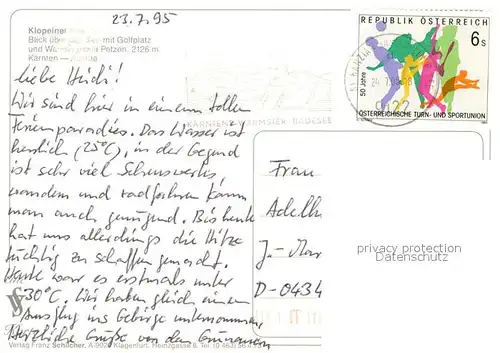 23.7.95
Klopeiner
Blick über den See mit Golfplatz
und Wandergebiet Petzen, 2126 m
Kärnten — Austria
Liebe Heidi!
Wir sind hier in einem tollen
Ferienparadies. Das Wasser ist
herrlich (25°C), in der Gegend
ist sehr viel Sehenswertes,
wandern und radfahren kann
man auch genügend. Bis heute
hat uns allerdings die Hitze
tüchtig zu schaffen gemacht.
Heute war es erstmals unter
30°C. Wir haben gleich einen
Ausflug ins Gebirge unternommen.
Herzliche Grüße von den
Verlag Franz Schilcher, A-9020 Klagenfurt, Feldzgasse 8, Tel.
KÄRNTENS WÄRMSTER BADESEE
REPUBLIK ÖSTERREICH
6s
50 Jahre
ÖSTERREICHISCHE TURN- UND SPORTUNION
Frau
Adelh
J.-Mar
D-0434
privacy protection
Datenschutz